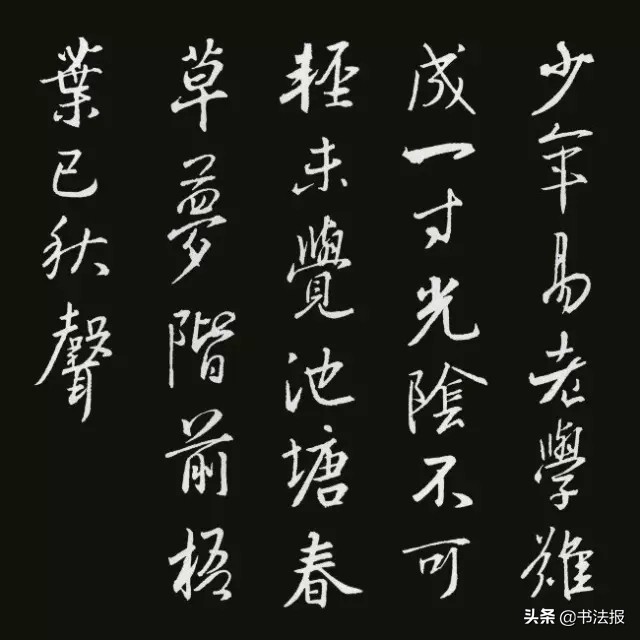 少年易老學難
成一寸光陰不可
輕未覺池塘春
草夢階前梧
葉已秋聲
头条 @书法报